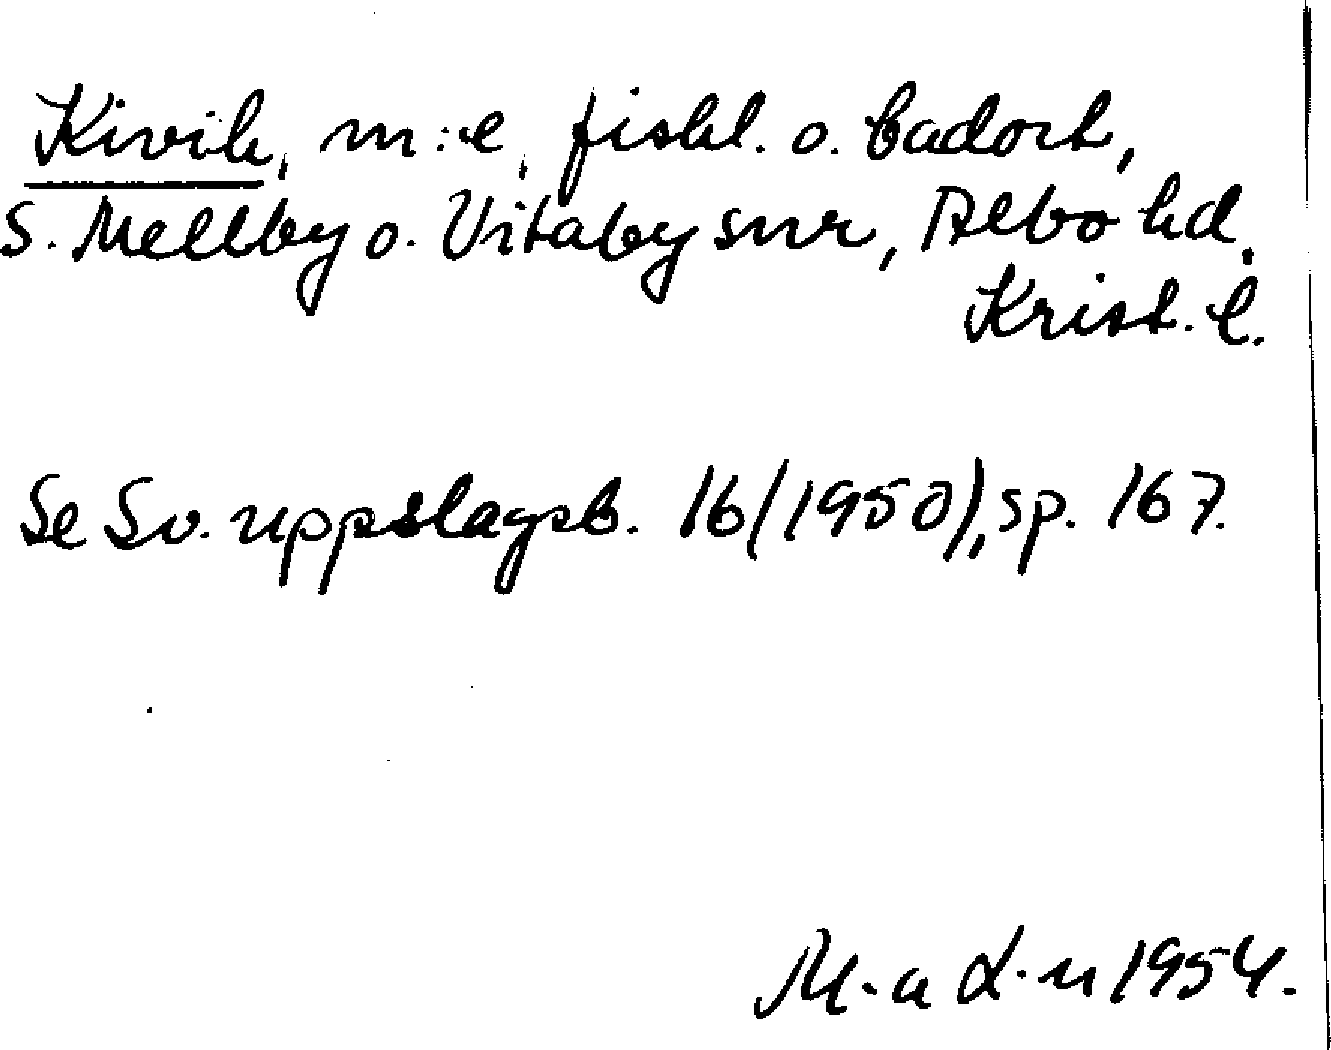 Kivik, m:e, fiskl. o. badort,
S. Mellby o. Vitaby snr, Albo hd,
Krist. l.
Se Sv. uppslagsb. 16 (1950), sp. 167.
M-a L-n 1954.